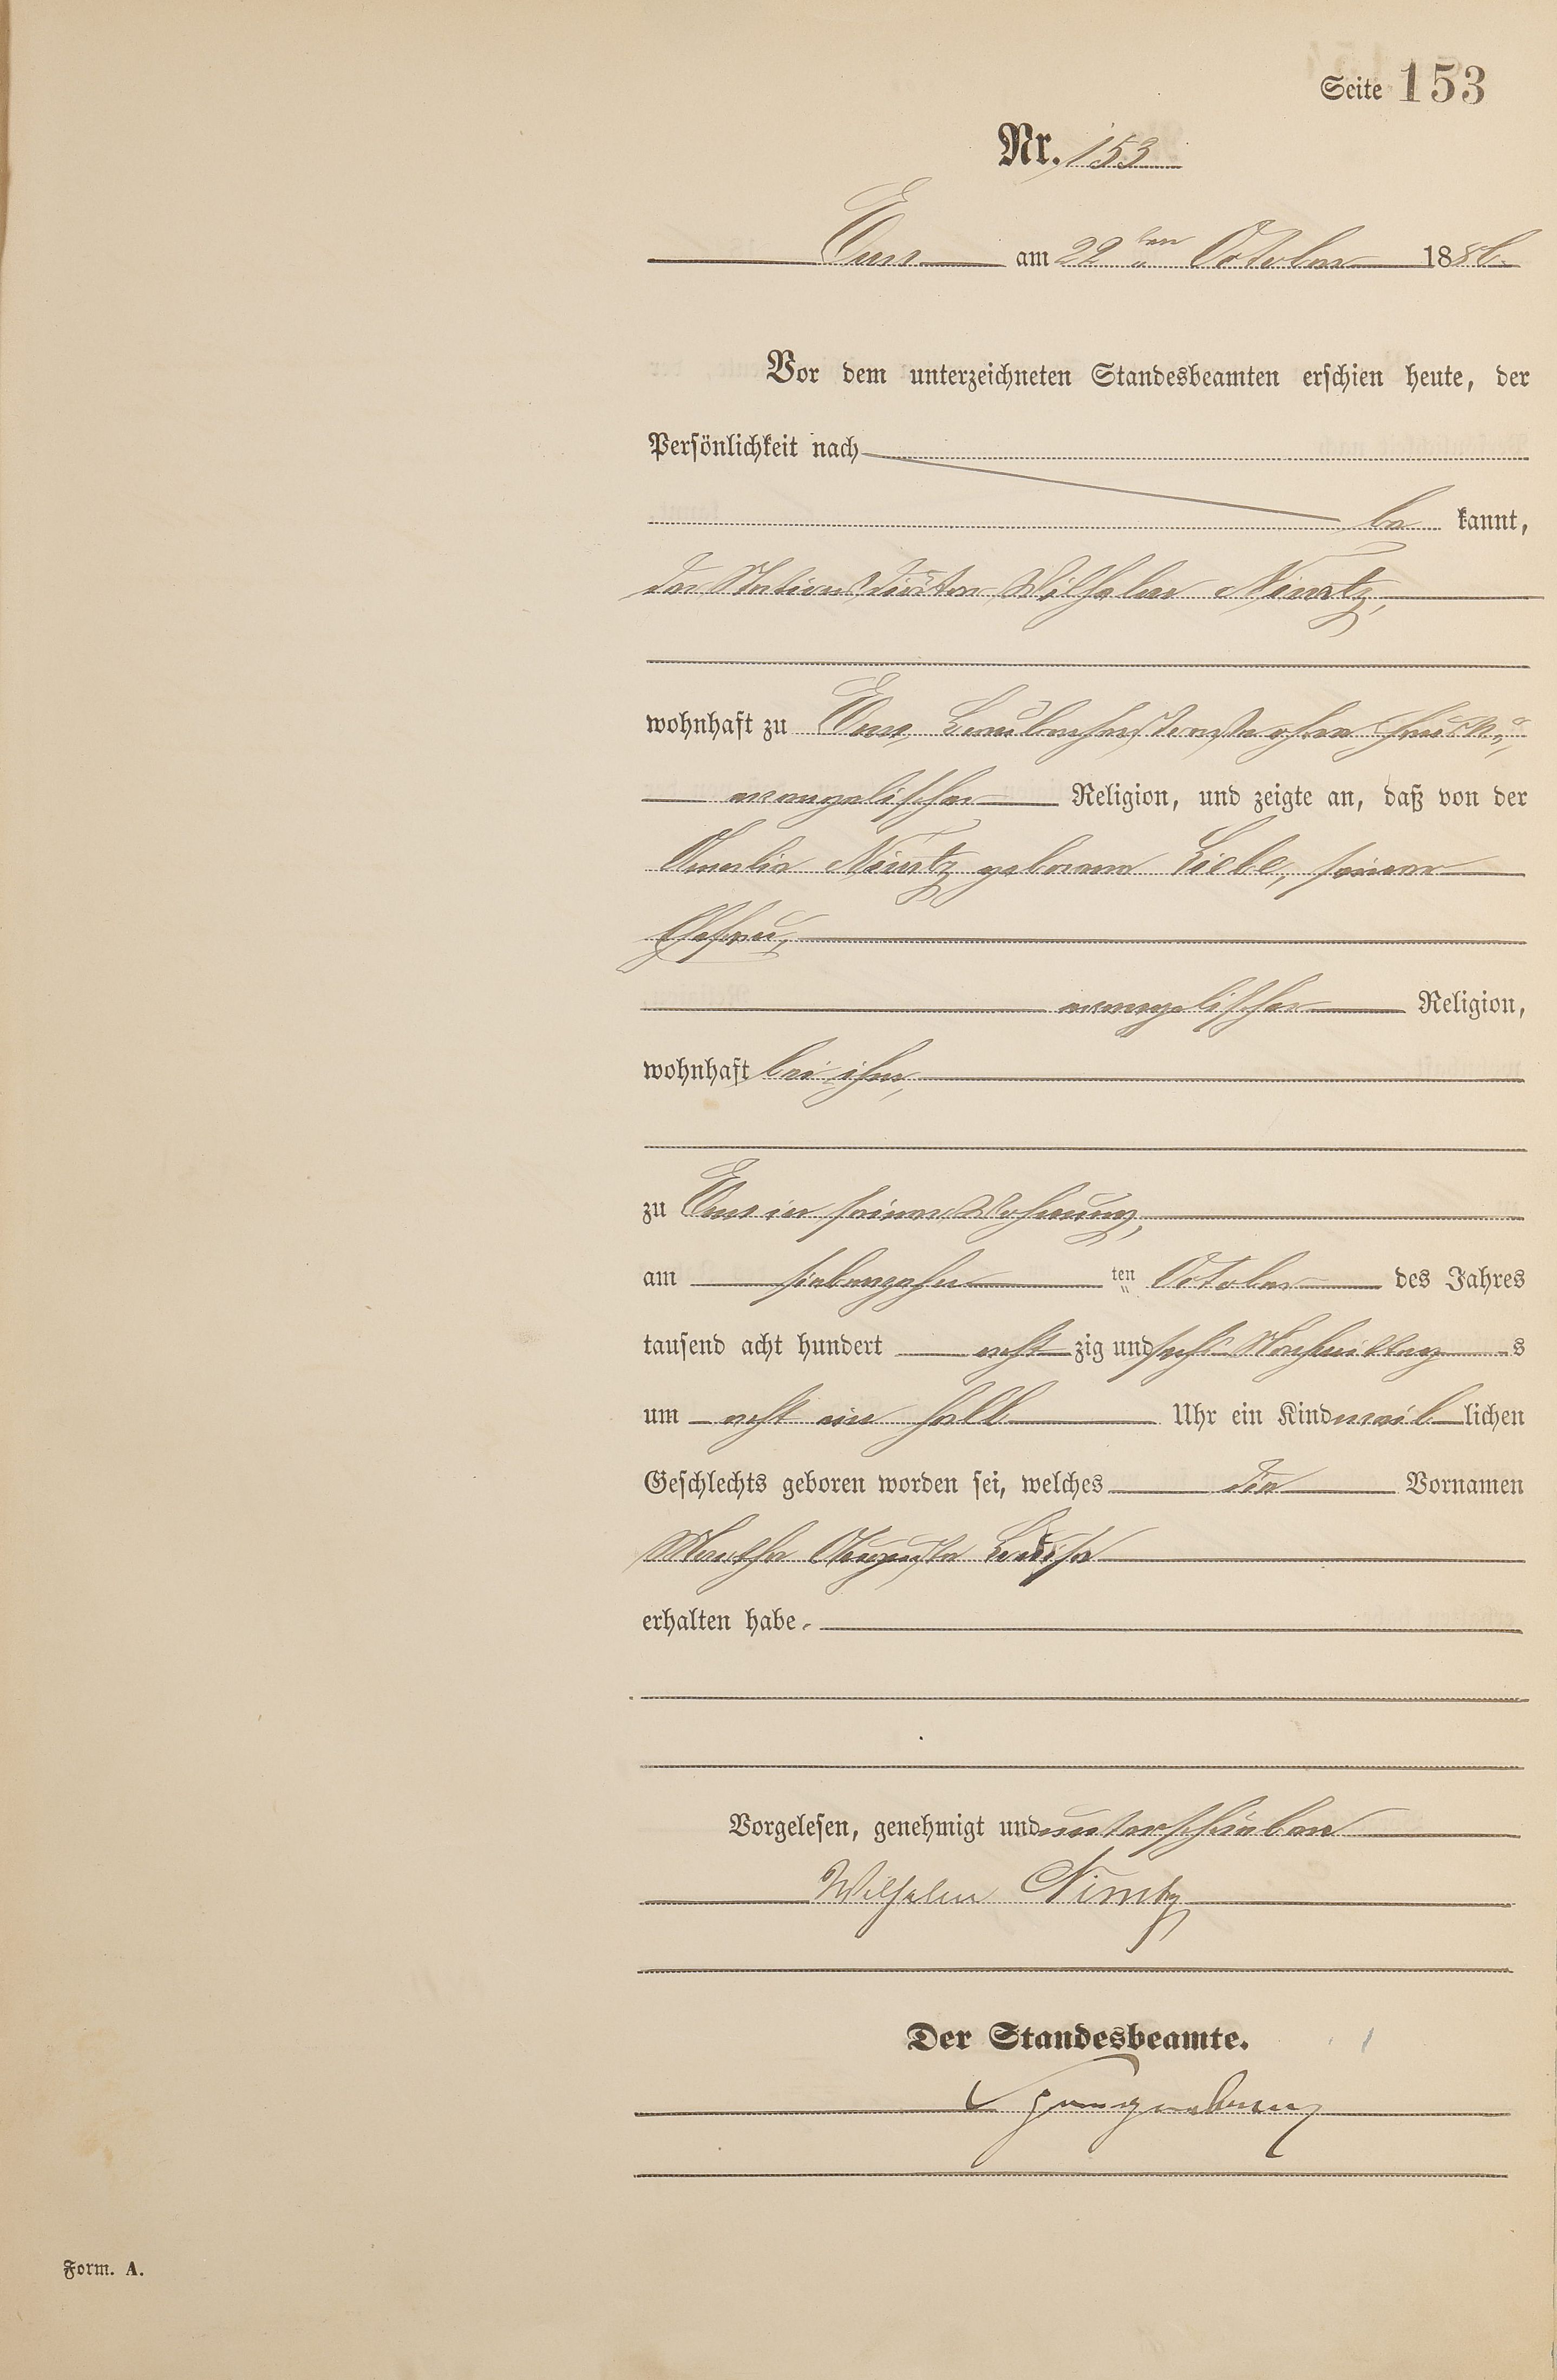 Seite 153
Nr. 153
Ems am 22ten October 1886.
Vor dem unterzeichneten Standesbeamten erschien heute, der
Persönlichkeit nach
be kannt,
der Stationsdiätar Wilhelm Nimtz,
wohnhaft zu Ems,
evangelischer Religion, und zeigte an, daß von der
Amalie Nimtz geborene Liebe, seiner
Ehefrau,
evangelischer Religion,
wohnhaft bei ihm,
zu Ems in seiner Wohnung,
am siebenzehn ten October des Jahres
tausend acht hundert acht zig und sechs Nachmittag s
um acht ein halb Uhr ein Kind weib lichen
Geschlechts geboren worden sei, welches die Vornamen
Martha Auguste Louise
erhalten habe.
Vorgelesen, genehmigt und unterschrieben
Wilhelm Nimtz
Der Standesbeamte.
Form. A.